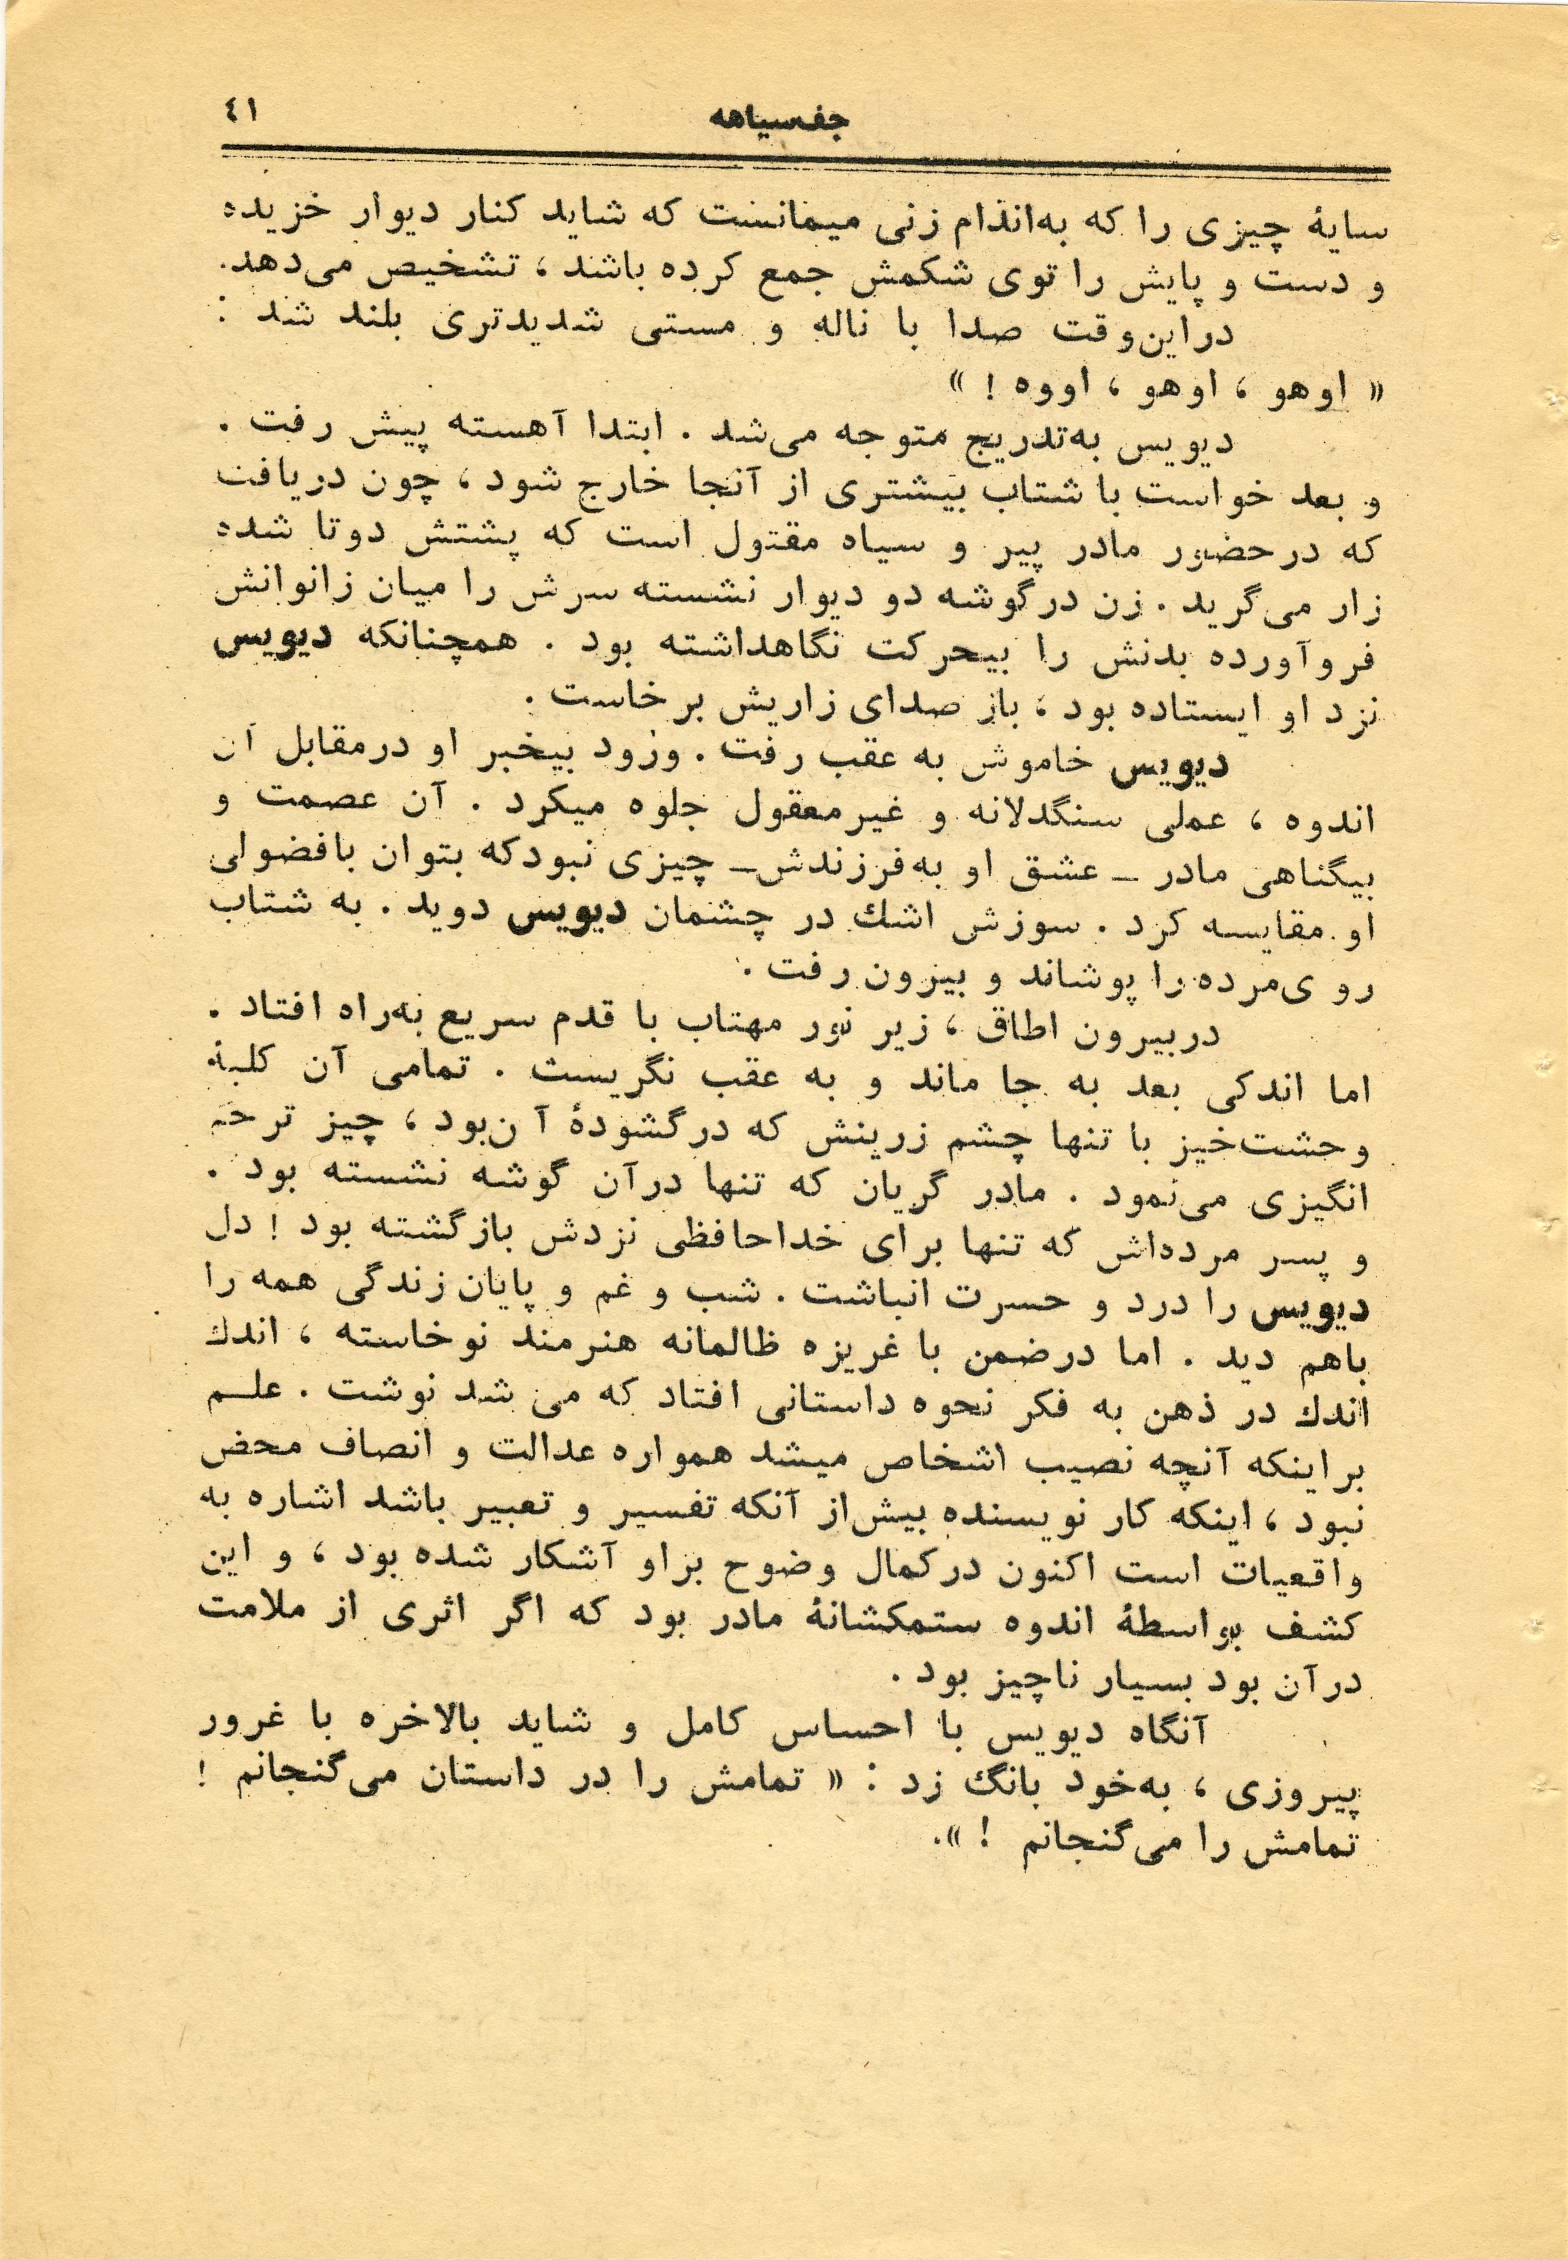 جف‌سیاهه
٤١
سایهٔ چیزی را که به‌اندام زنی میمانست که شاید کنار دیوار خزیده
و دست و پایش را توی شکمش جمع کرده باشد ، تشخیص می‌دهد.
دراین‌وقت صدا با ناله و مستی شدیدتری بلند شد :
« اوهو ، اوهو ، اووه ! »
دیویس به‌تدریج متوجه می‌شد . ابتدا آهسته پیش رفت .
و بعد خواست با شتاب بیشتری از آنجا خارج شود ، چون دریافت
که درحضور مادر پیر و سیاه مقتول است که پشتش دوتا شده
زار می‌گرید . زن درگوشه دو دیوار نشسته سرش را میان زانوانش
فروآورده بدنش را بیحرکت نگاهداشته بود . همچنانکه دیویس
نزد او ایستاده بود ، باز صدای زاریش برخاست .
دیویس خاموش به عقب رفت . ورود بیخبر او درمقابل آن
اندوه ، عملی سنگدلانه و غیرمعقول جلوه میکرد . آن عصمت و
بیگناهی مادر ـ عشق او به‌فرزندش ـ چیزی نبودکه بتوان بافضولی
او مقایسه کرد . سوزش اشك در چشمان دیویس دوید . به شتاب
روی‌مرده را پوشاند و بیرون رفت .
دربیرون اطاق ، زیر نور مهتاب با قدم سریع به‌راه افتاد .
اما اندکی بعد به جا ماند و به عقب نگریست . تمامی آن کلبهٔ
وحشت‌خیز با تنها چشم زرینش که درگشودهٔ آن‌بود ، چیز ترحم
انگیزی می‌نمود . مادر گریان که تنها درآن گوشه نشسته بود .
و پسر مرده‌اش که تنها برای خداحافظی نزدش بازگشته بود ! دل
دیویس را درد و حسرت انباشت . شب و غم و پایان زندگی همه را
باهم دید . اما درضمن با غریزه ظالمانه هنرمند نوخاسته ، اندك
اندك در ذهن به فکر نحوه داستانی افتاد که می شد نوشت . علـم
براینکه آنچه نصیب اشخاص میشد همواره عدالت و انصاف محض
نبود ، اینکه کار نویسنده بیش‌از آنکه تفسیر و تعبیر باشد اشاره به
واقعیات است اکنون درکمال وضوح براو آشکار شده بود ، و این
کشف بواسطهٔ اندوه ستمکشانهٔ مادر بود که اگر اثری از ملامت
درآن بود بسیار ناچیز بود .
آنگاه دیویس با احساس کامل و شاید بالاخره با غرور
پیروزی ، به‌خود بانگ زد : « تمامش را در داستان می‌گنجانم !
تمامش را می‌گنجانم ! ».